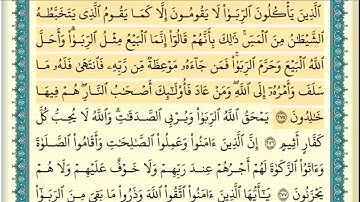 ٱلَّذِينَ يَأۡكُلُونَ ٱلرِّبَوٰاْ لَا يَقُومُونَ إِلَّا كَمَا يَقُومُ ٱلَّذِي يَتَخَبَّطُهُ
ٱلشَّيۡطَٰنُ مِنَ ٱلۡمَسِّۚ ذَٰلِكَ بِأَنَّهُمۡ قَالُوٓاْ إِنَّمَا ٱلۡبَيۡعُ مِثۡلُ ٱلرِّبَوٰاْۗ وَأَحَلَّ
ٱللَّهُ ٱلۡبَيۡعَ وَحَرَّمَ ٱلرِّبَوٰاْۚ فَمَن جَآءَهُۥ مَوۡعِظَةٞ مِّن رَّبِّهِۦ فَٱنتَهَىٰ فَلَهُۥ مَا
سَلَفَ وَأَمۡرُهُۥٓ إِلَى ٱللَّهِۖ وَمَنۡ عَادَ فَأُوْلَٰٓئِكَ أَصۡحَٰبُ ٱلنَّارِۖ هُمۡ فِيهَا
خَٰلِدُونَ ٢٧٥ يَمۡحَقُ ٱللَّهُ ٱلرِّبَوٰاْ وَيُرۡبِي ٱلصَّدَقَٰتِۗ وَٱللَّهُ لَا يُحِبُّ كُلَّ
كَفَّارٍ أَثِيمٍ ٢٧٦ إِنَّ ٱلَّذِينَ ءَامَنُواْ وَعَمِلُواْ ٱلصَّٰلِحَٰتِ وَأَقَامُواْ ٱلصَّلَوٰةَ
وَءَاتَوُاْ ٱلزَّكَوٰةَ لَهُمۡ أَجۡرُهُمۡ عِندَ رَبِّهِمۡ وَلَا خَوۡفٌ عَلَيۡهِمۡ وَلَا هُمۡ
يَحۡزَنُونَ ٢٧٧ يَٰٓأَيُّهَا ٱلَّذِينَ ءَامَنُواْ ٱتَّقُواْ ٱللَّهَ وَذَرُواْ مَا بَقِيَ مِنَ ٱلرِّبَوٰٓاْ